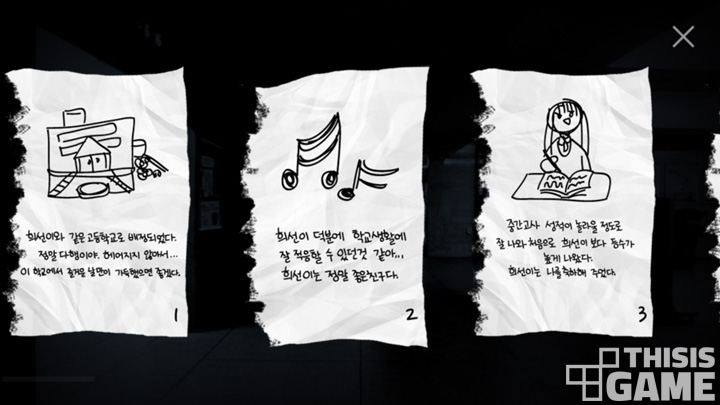 희선이와 같은 고등학교로 배정되었다.
정말 다행이야. 헤어지지 않아서...
이 학교에서 즐거운 날만이 가득했으면 좋겠다.
1
희선이 덕분에 학교생활에
잘 적응할 수 있던것 같아...
희선이는 정말 좋은친구다.
2
중간고사 성적이 놀라울 정도로
잘 나와 처음으로 희선이 보다 등수가
높게 나왔다.
희선이는 나를축하해 주었다.
3
THISIS
GAME